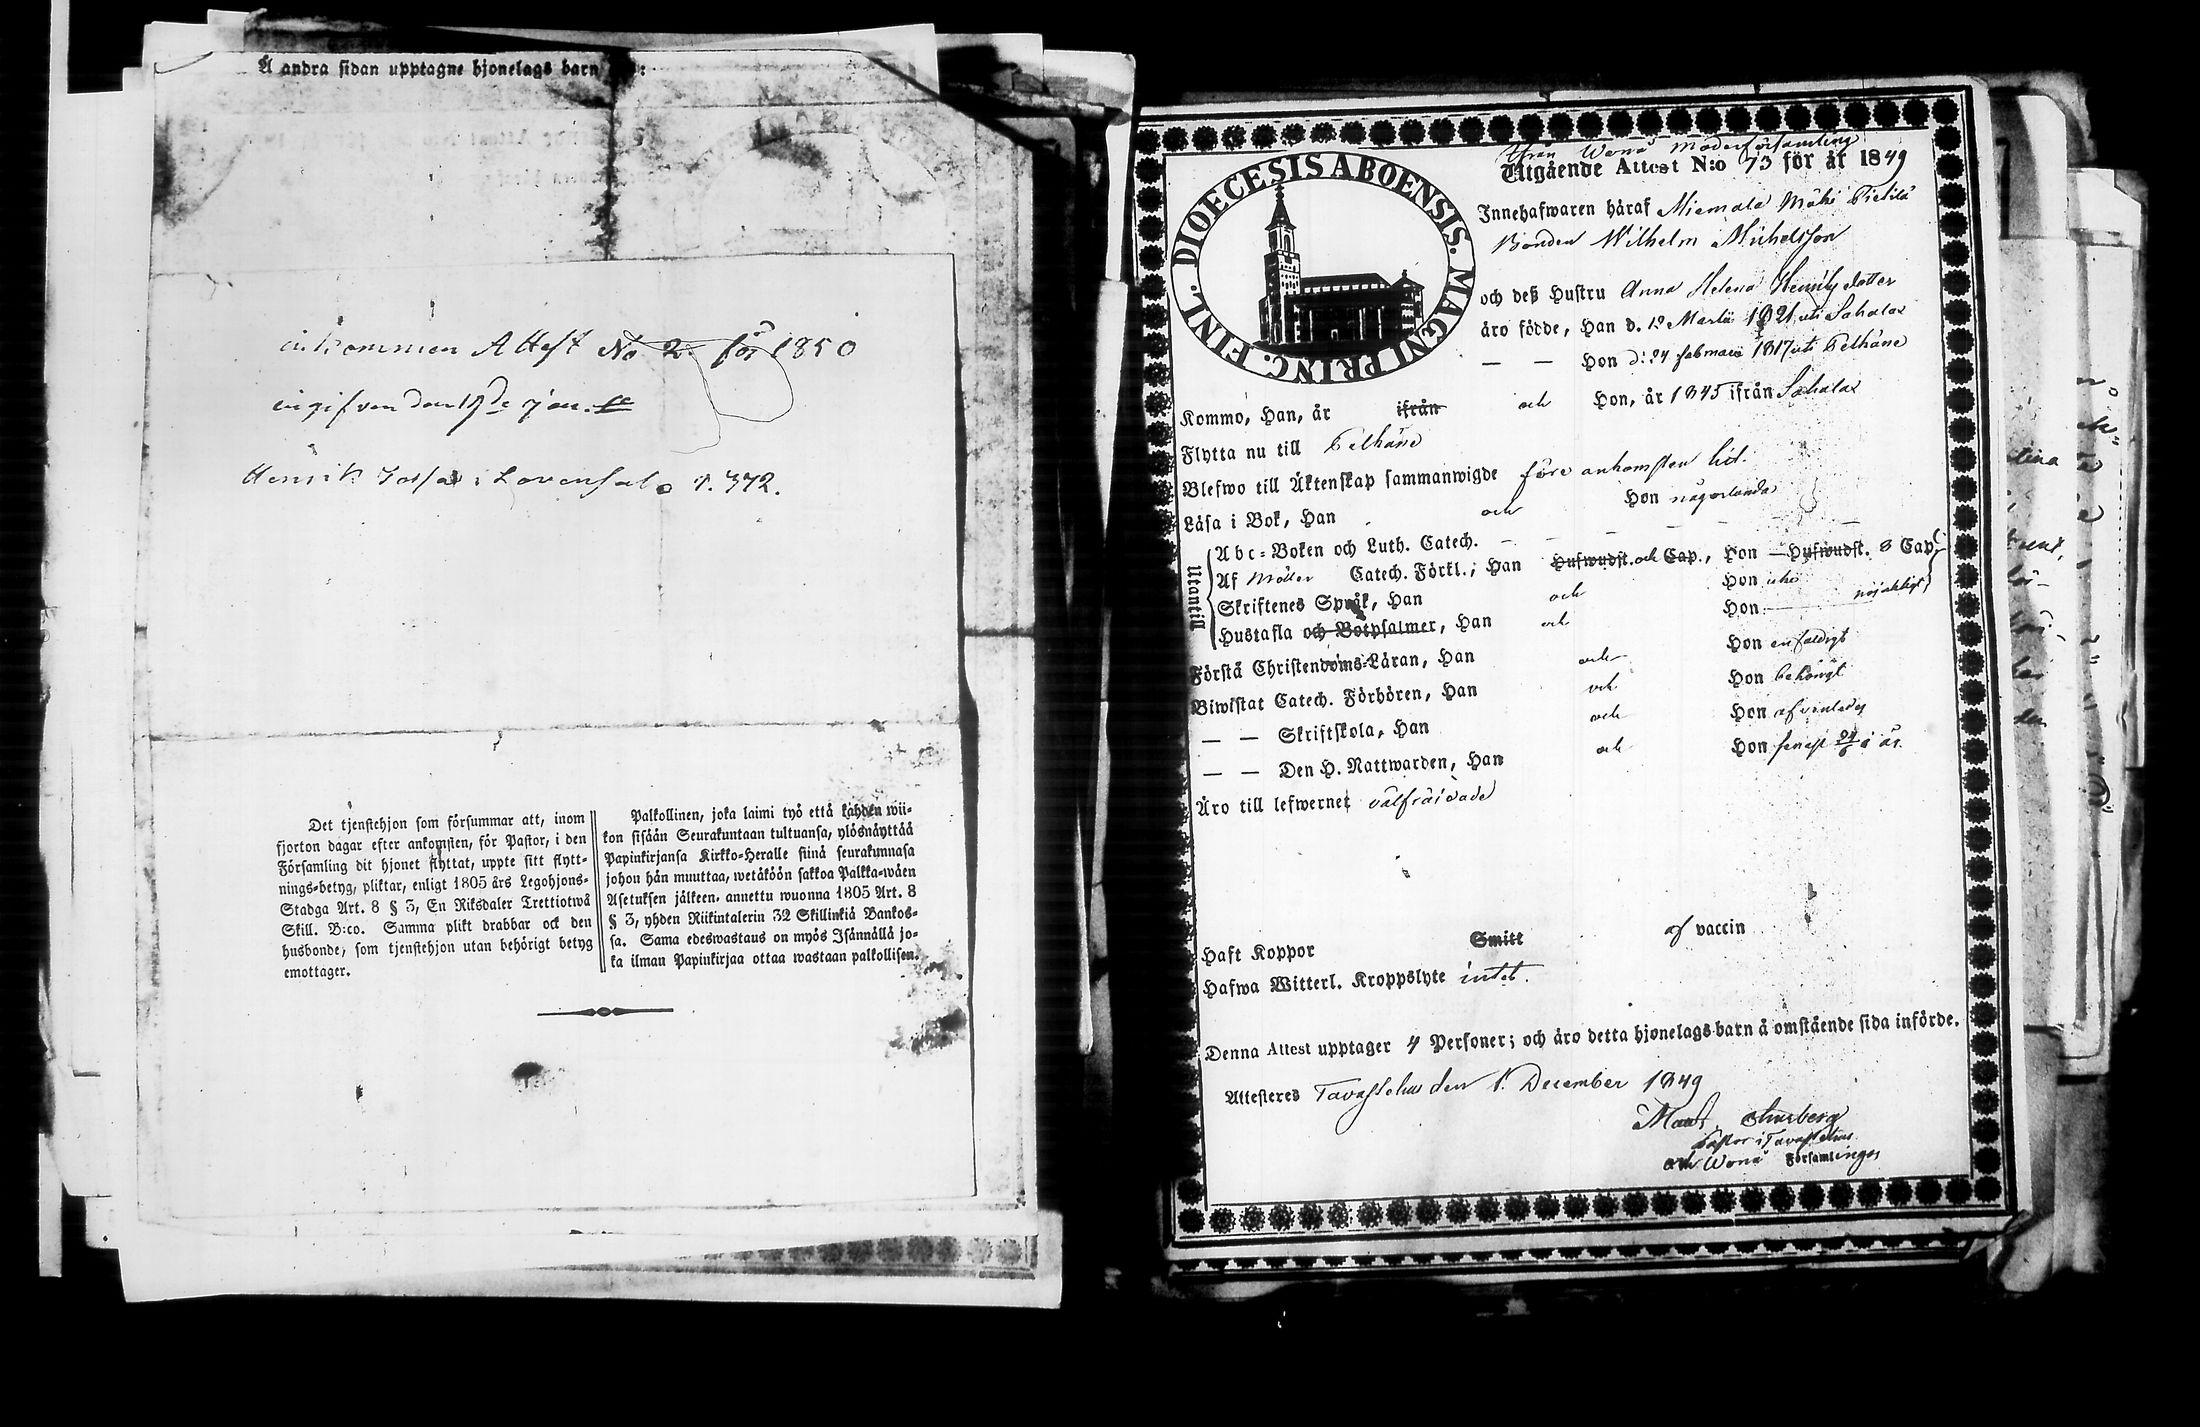 Å andra sidan upptagne hjonelags barn
inkommen Attest No 2 för 1850
ingifven den 19de Jan.
Henrik i p. 372.
Det tjenstehjon som försummar att, inom
fjorton dagar efter ankomsten, för Pastor, i den
Församling dit hjonet flyttat, uppte sitt flytt-
nings-betyg, pliktar, enligt 1805 års Legohjons-
Stadga Art. 8 § 3, En Riksdaler Trettiotwå
Skill. B:co. Samma plikt drabbar ock den
husbonde, som tjenstehjon utan behörigt betyg
emottager.
Palkollinen, joka laimi työ että kahden wii-
kon sisään Seurakuntaan tultuansa, ylösnäyttää
Papinkirjansa Kirkko-Heralle siinä seurakunnasa
johon hän muuttaa, wetäköön sakkoa Palkka-wäen
Asetuksen jälkeen, annettu wuonna 1805 Art. 8
§ 3, yhden Riikintalerin 32 Skillinkiä Bankos-
sa. Sama edeswastaus on myös Isännällä jo-
ka ilman Papinkirjaa ottaa wastaan palkollisen.
DIOECESIS ABOENSIS. MAGNI PRINC. FINL.
Ifrån Wånå Moderförsamling
Utgående Attest N:o 73 för år 1849
Innehafwaren häraf Miemala Mäki Pietilä
Bonden Wilhelm Michelsson
och deß Hustru Anna Helena Henriksdotter
äro födde, Han d. 12 Martii 1821 uti Sahalax
— — Hon d: 24 februari 1817 uti Pelkäne
Kommo, Han, år ifrån och Hon, år 1845 ifrån Sahalax
Flytta nu till Pelkäne
Blefwo till Äktenskap sammanwigde före ankomsten hit.
Läsa i Bok, Han och Hon någorlunda
Utantill
Abc-Boken och Luth. Catech. — — — — —
Af Möller Catech. Förkl.; Han Hufwudst. och Cap., Hon — Hufwudst. 8 Cap.
Skriftenes Språk, Han och Hon icke
Hustafla och Botpsalmer, Han och Hon — nöjaktigt
Förstå Christendoms-Läran, Han och Hon enfaldigt
Biwistat Catech. Förhören, Han och Hon behörigt
— — Skriftskola, Han och Hon
— — Den H. Nattwarden, Han och Hon senast i år.
Äro till lefwernet välfräjdade
Haft Koppor Smitt af vaccin
Hafwa Witterl. Kroppslyte intet.
Denna Attest upptager 4 Personer; och äro detta hjonelags barn å omstående sida införde.
Attesteres Tavastehus den 1. December 1849
Churberg
Pastor i Tavastehus
och Wånå Församlingar